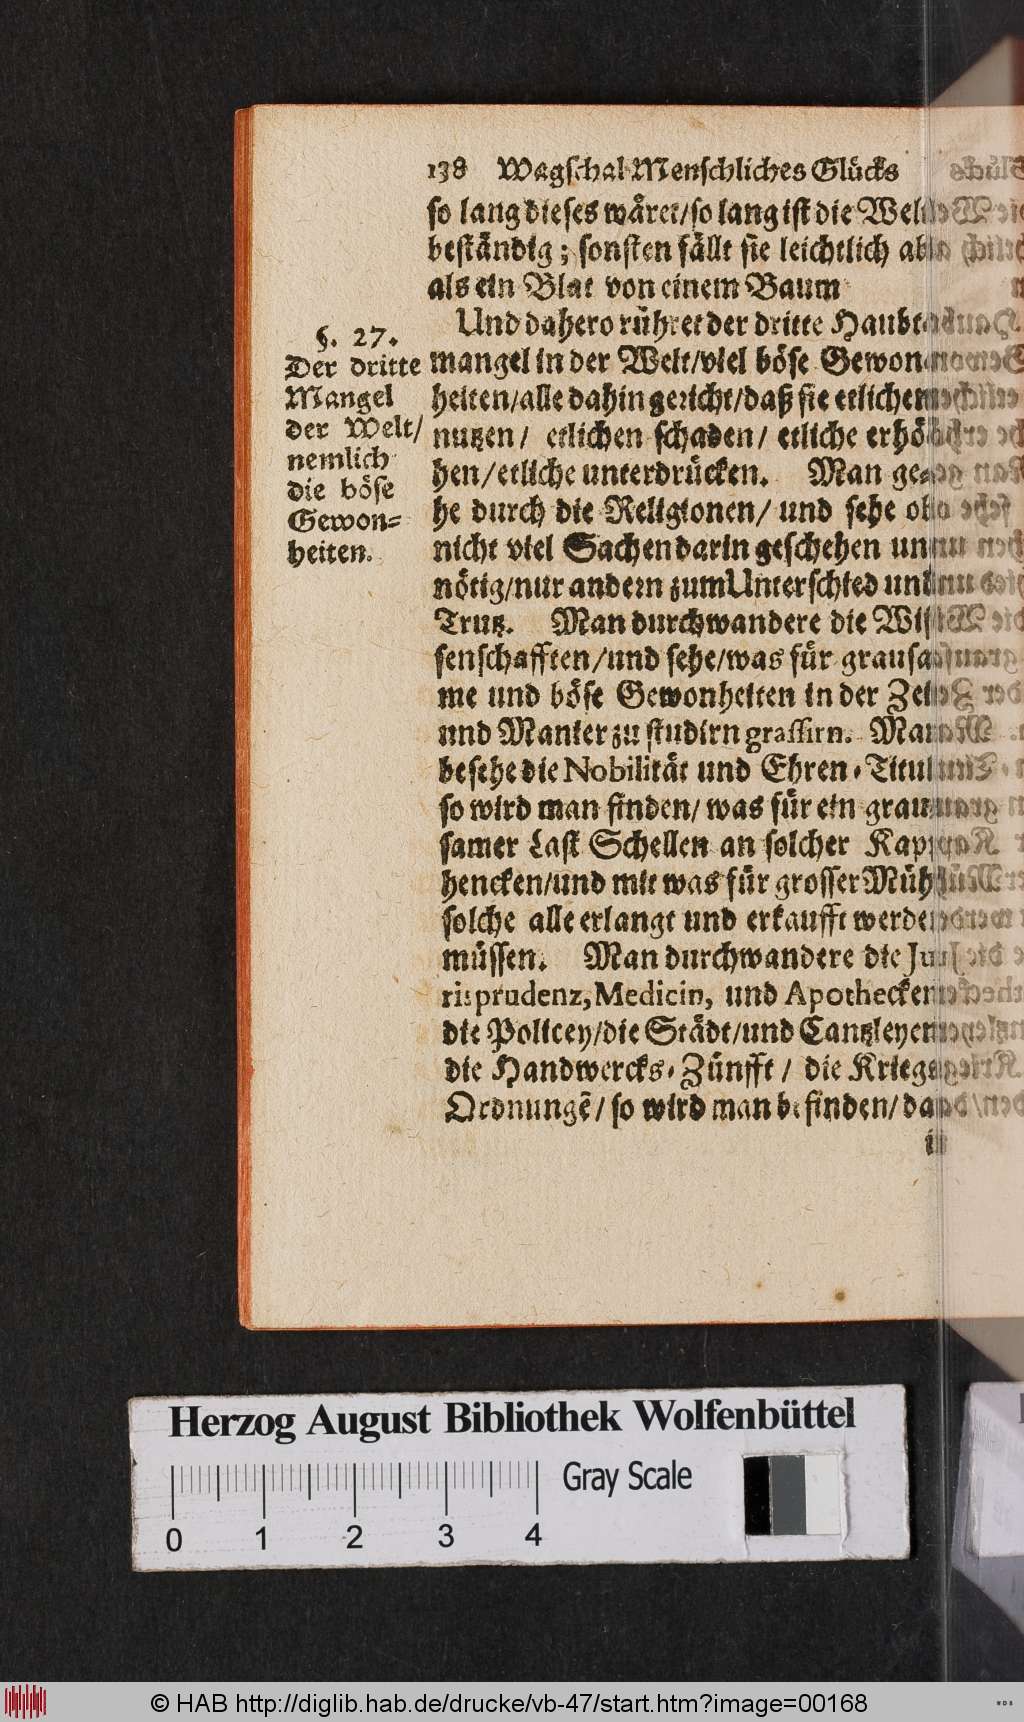 138 Wagschal Menschliches Glücks
so lang dieses wåret/so lang ist die Welt
beståndig; sonsten fållt sie leichtlich ab/
als ein Blat von einem Baum
Und dahero rühret der dritte Haubt-
mangel in der Welt/viel böse Gewon-
heiten/alle dahin gericht/daß sie etlichen
nutzen/ etlichen schaden/ etliche erhö-
hen/etliche unterdrücken. Man ge-
he durch die Religionen/ und sehe ob
nicht viel Sachen darin geschehen un-
nötig/nur andern zum Unterschied und
Trutz. Man durchwandere die Wis-
senschafften/und sehe/was für grausa-
me und böse Gewonheiten in der Zeit
und Manier zu studirn grassirn. Man
besehe die Nobilitåt und Ehren-Titul
so wird man finden/ was für ein grau-
samer Last Schellen an solcher Kapp
hencken/und mit was für grosser Müh
solche alle erlangt und erkaufft werden
müssen. Man durchwandere die Ju-
risprudenz, Medicin, und Apothecken
die Policey/die Stådt/und Cantzleyen
die Handwercks-Zünfft / die Kriegs-
Ordnungẽ/ so wird man befinden/ daß
in
§. 27.
Der dritte
Mangel
der Welt/
nemlich
die böse
Gewon-
heiten.
Herzog August Bibliothek Wolfenbüttel
0 1 2 3 4
Gray Scale
© HAB http://diglib.hab.de/drucke/vb-47/start.htm?image=00168